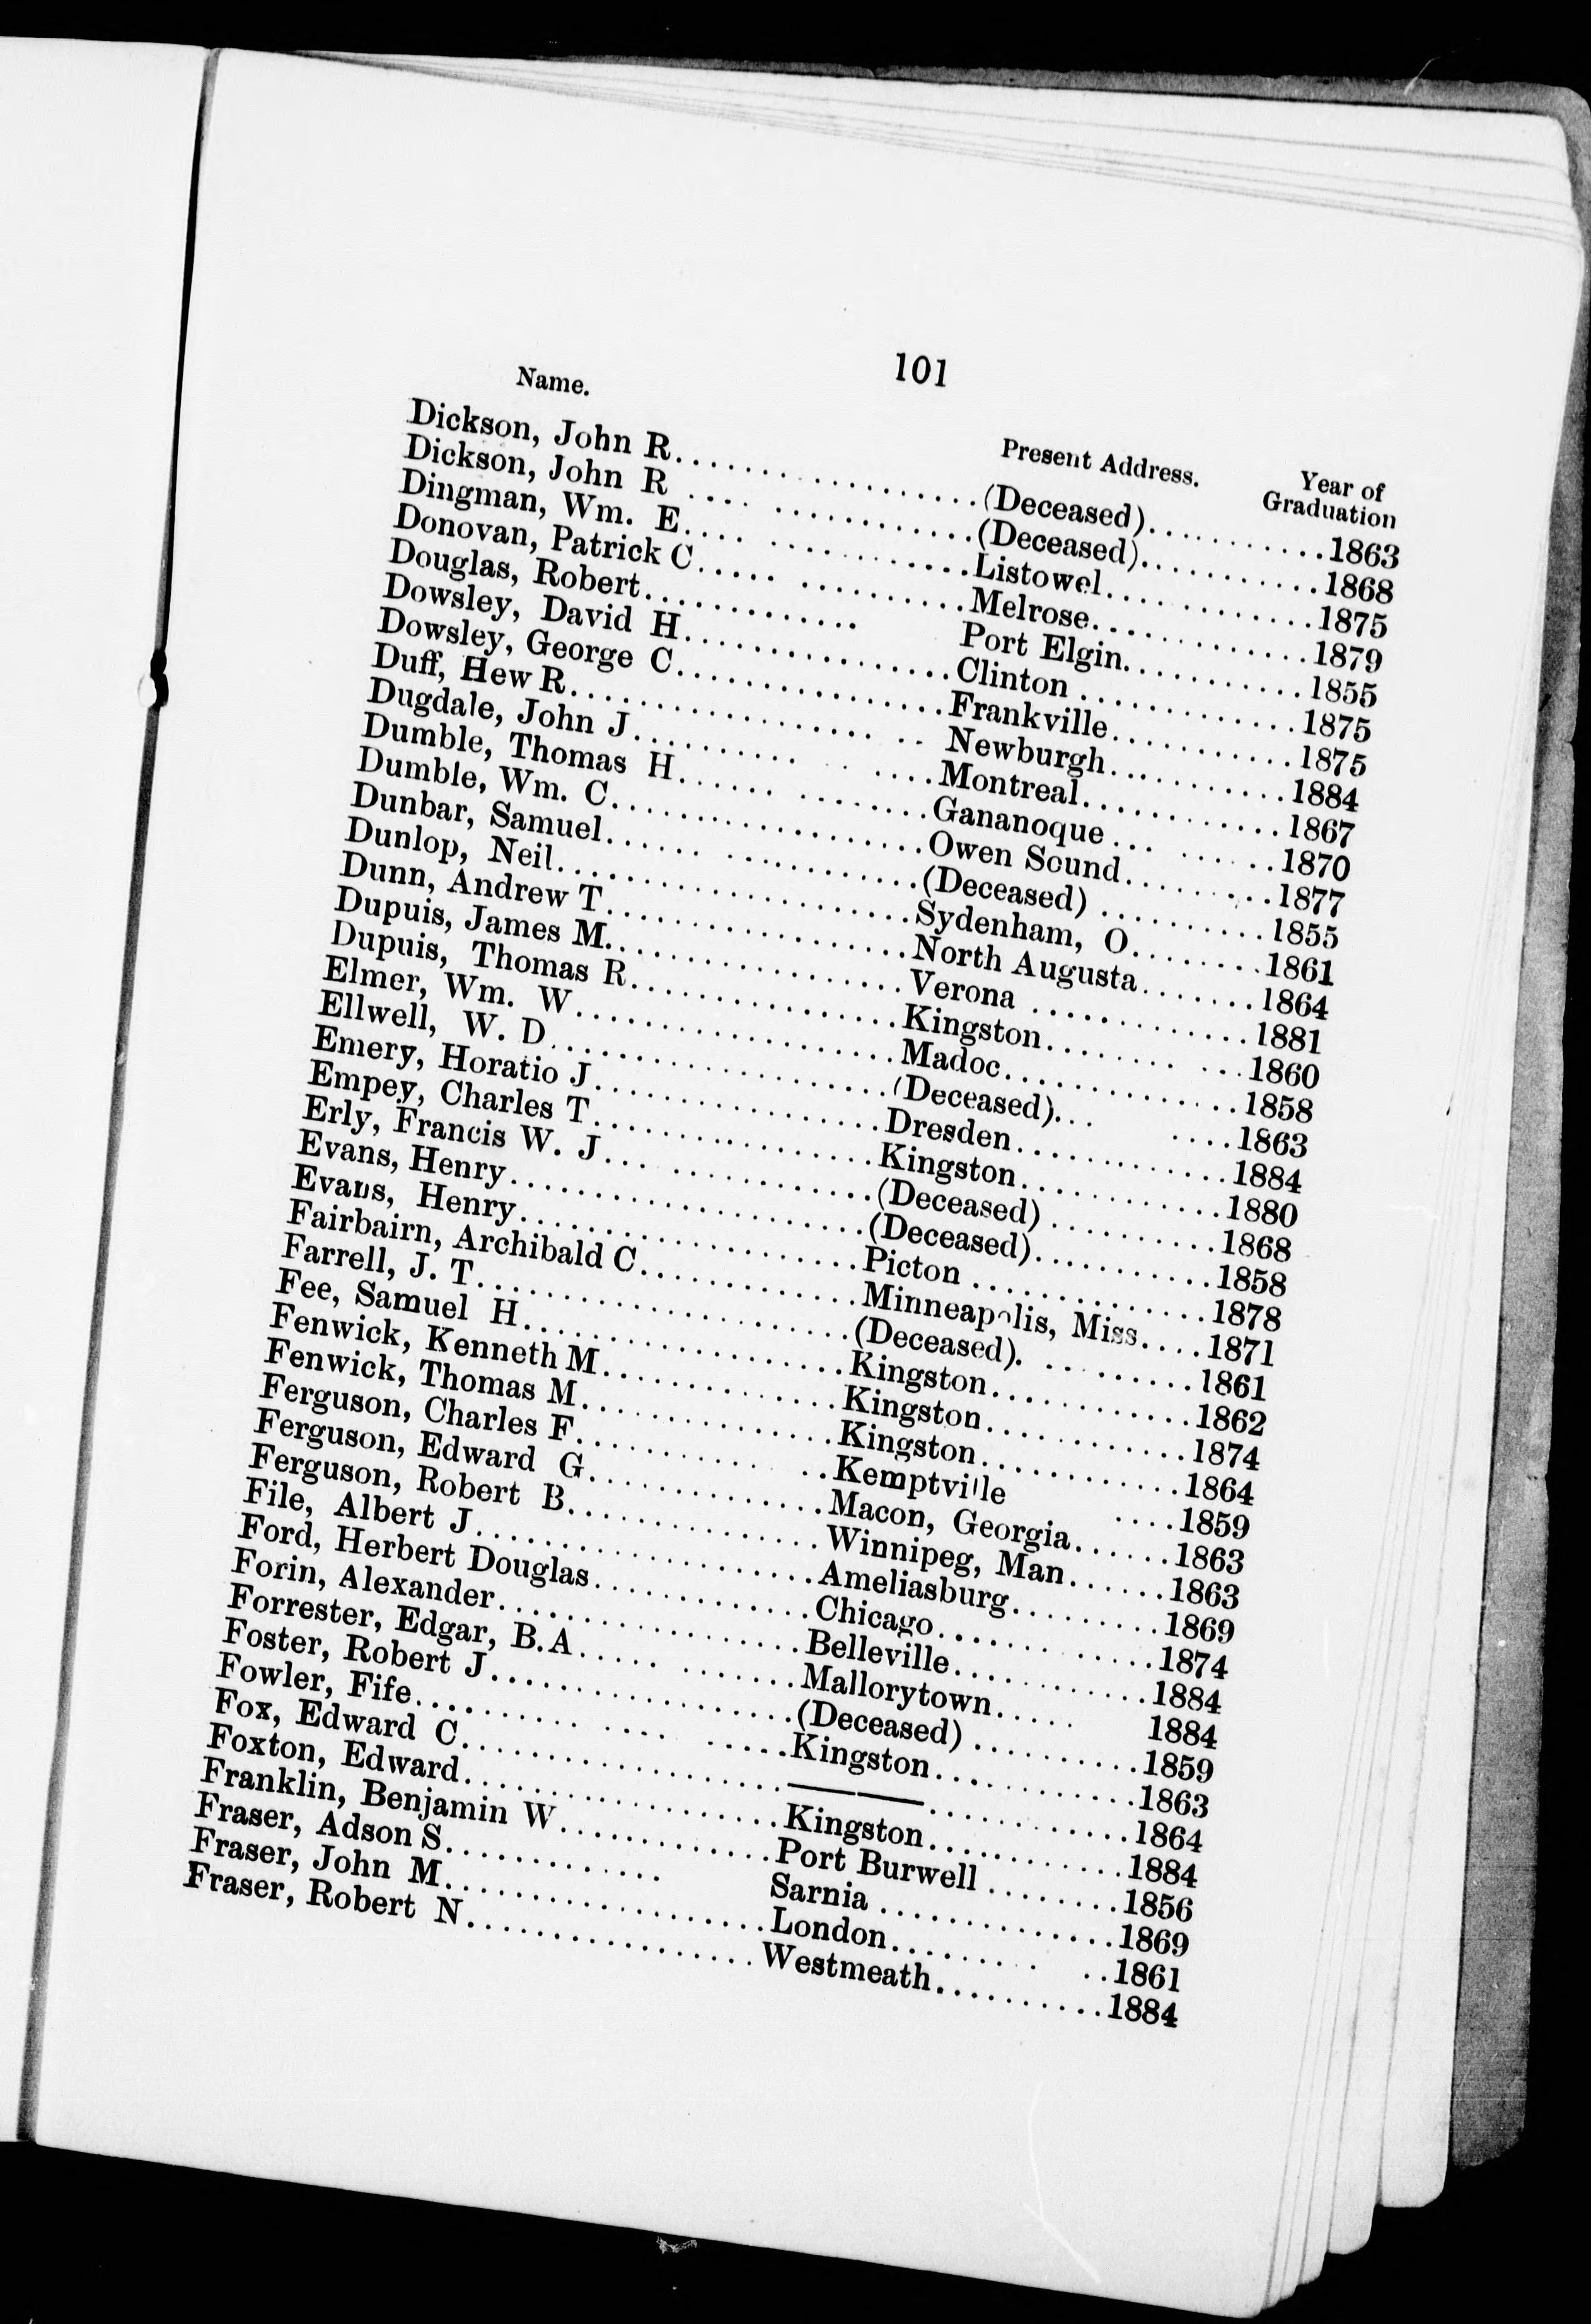 101
Name. Present Address. Year of
Graduation
Dickson, John R....................(Deceased)...........1863
Dickson, John R ....................(Deceased)...........1868
Dingman, Wm. E....................Listowel.............1875
Donovan, Patrick C....................Melrose.............1879
Douglas, Robert............. Port Elgin...........1855
Dowsley, David H...................Clinton .............1875
Dowsley, George C..................Frankville...........1875
Duff, Hew R.................... Newburgh...........1884
Dugdale, John J................Montreal............1867
Dumble, Thomas H................Gananoque... ......1870
Dumble, Wm. C....................Owen Sound.........1877
Dunbar, Samuel....................(Deceased) ..........1855
Dunlop, Neil......................Sydenham, O........1861
Dunn, Andrew T....................North Augusta.......1864
Dupuis, James M...................Verona .............1881
Dupuis, Thomas R..................Kingston............1860
Elmer, Wm. W.....................Madoc..............1858
Ellwell, W. D......................(Deceased)... ....1863
Emery, Horatio J..................Dresden.............1884
Empey, Charles T..................Kingston............1880
Erly, Francis W. J..................(Deceased) ..........1868
Evans, Henry......................(Deceased)...........1858
Evans, Henry......................Picton ..............1878
Fairbairn, Archibald C..............Minneapolis, Miss....1871
Farrell, J. T........................(Deceased). .........1861
Fee, Samuel H.....................Kingston............1862
Fenwick, Kenneth M................Kingston............1874
Fenwick, Thomas M................Kingston............1864
Ferguson, Charles F..............Kemptville ....1859
Ferguson, Edward G...............Macon, Georgia......1863
Ferguson, Robert B................Winnipeg, Man......1863
File, Albert J......................Ameliasburg.........1869
Ford, Herbert Douglas..............Chicago.............1874
Forin, Alexander...................Belleville............1884
Forrester, Edgar, B.A.............Mallorytown..... 1884
Foster, Robert J...................(Deceased) ..........1859
Fowler, Fife....................Kingston............1863
Fox, Edward C.....................————............1864
Foxton, Edward....................Kingston............1884
Franklin, Benjamin W..............Port Burwell ........1856
Fraser, Adson S............. Sarnia ..............1869
Fraser, John M....................London......... ..1861
Fraser, Robert N..................Westmeath..........1884